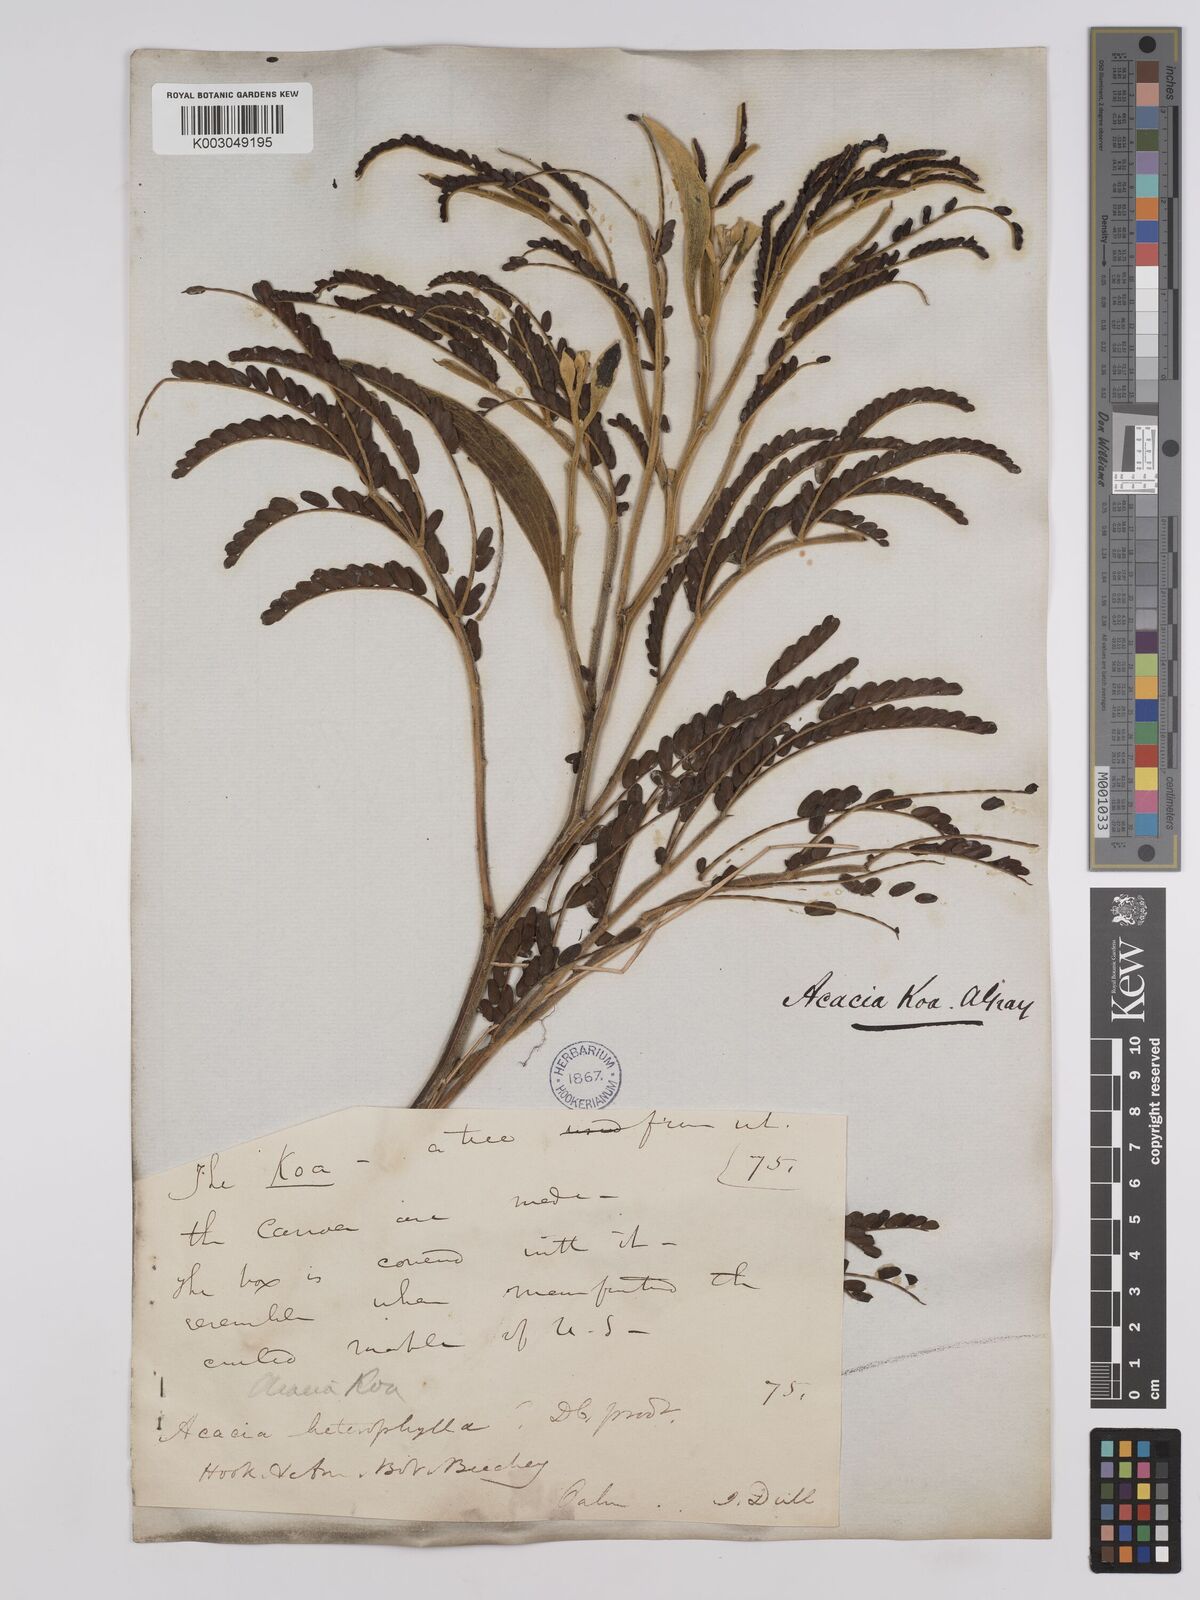 ROYAL BOTANIC GARDENS KEW
K003049195
Acacia Koa. A Gray
HERBARIUM
1867.
HOOKERIANUM
The Koa - a tree used from wh.
75.
the Canoes are made -
The box is covered with it -
resembles when manufacted the
curled maple of U.S -
Acacia Koa
75.
Acacia heterophylla? DC. prodr.
Hook. & Arn. Bot. Beechey
Oahu . . J. Diell
inches
centimeters
Don Williams
M001033
Density
Royal Botanic Gardens
Kew
0 1 2 3 4 5 6 7 8 9 10
cm
copyright reserved